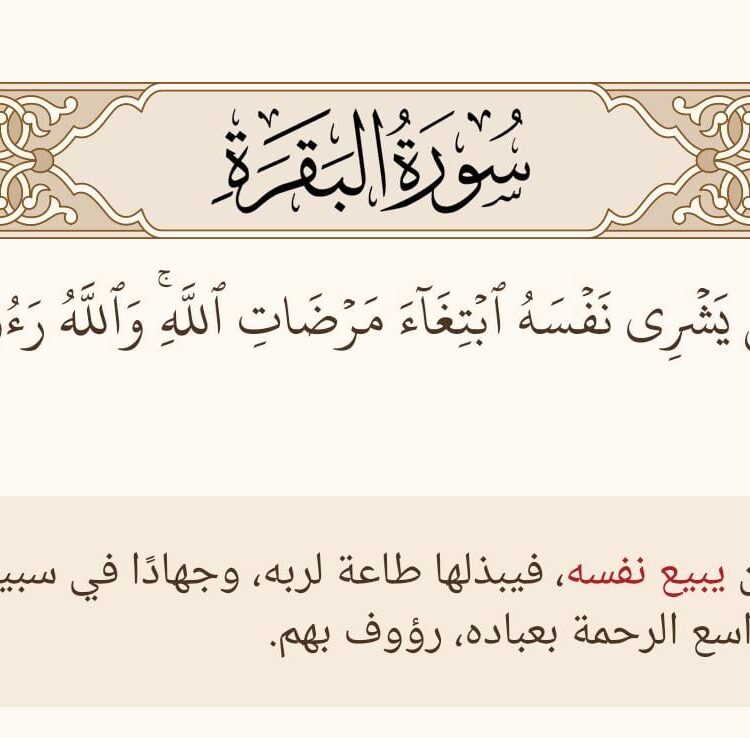 سُورَةُ البَقَرَةِ
يَشْرِى نَفْسَهُ ٱبْتِغَآءَ مَرْضَاتِ ٱللَّهِۚ وَٱللَّهُ
يبيع نفسه، فيبذلها طاعة لربه، وجهادًا في
الرحمة بعباده، رؤوف بهم.